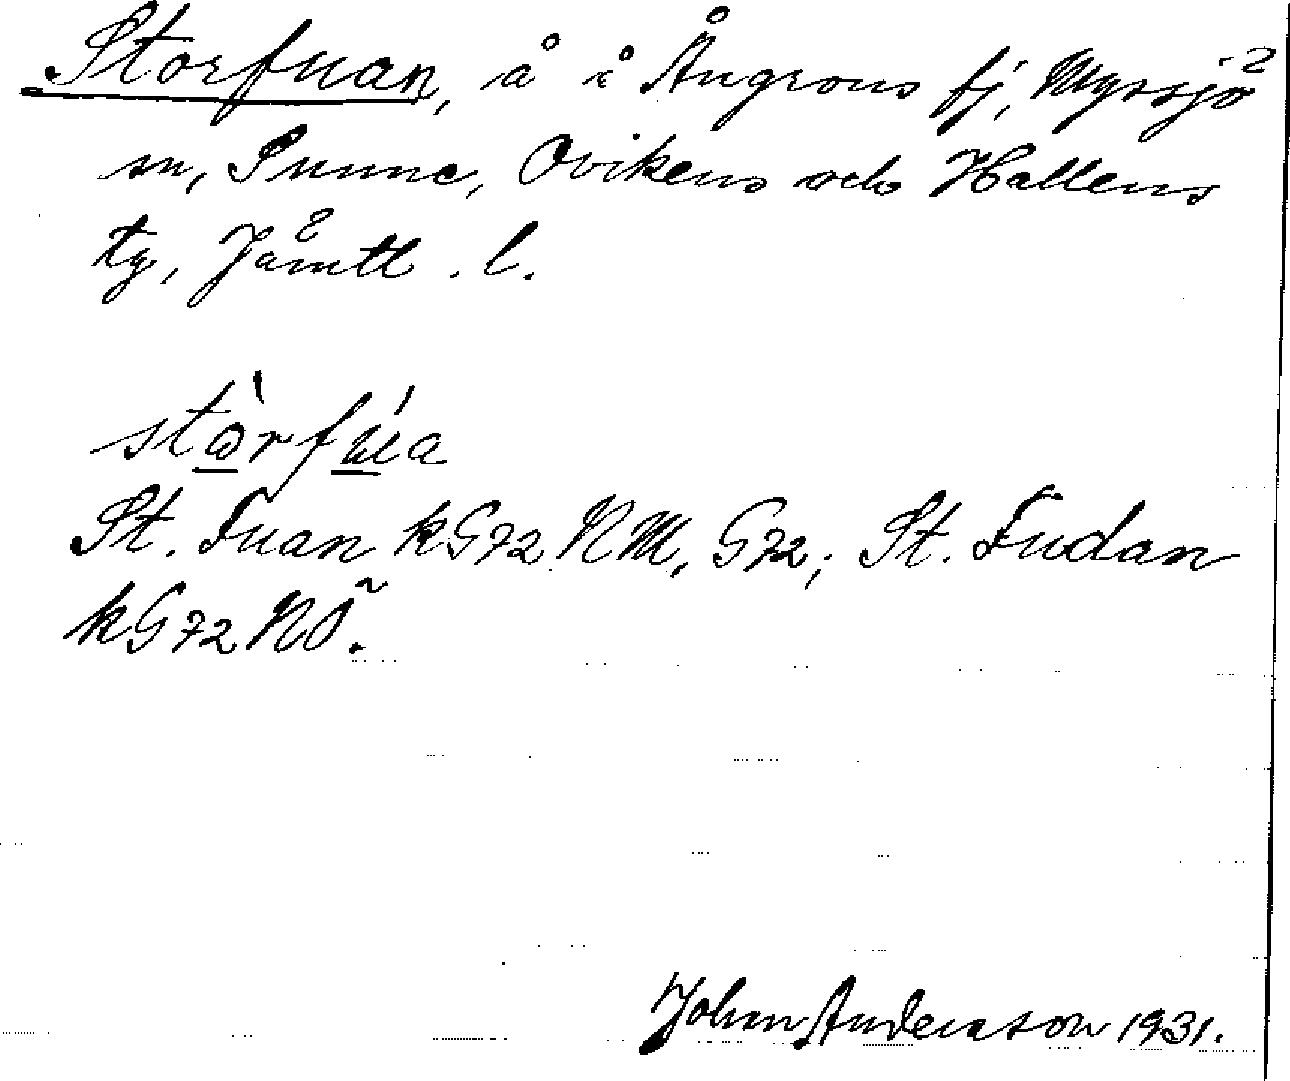 Storfuan, å i Ångrons fj, Myssjö
sn, Sunne, Ovikens och Hallens
tg, Jämtl. l.
stòrfúa
St. Fuan kG72 NM, G72; St. Fudan
kG72 NÖ.
Johan Anderason 1931.